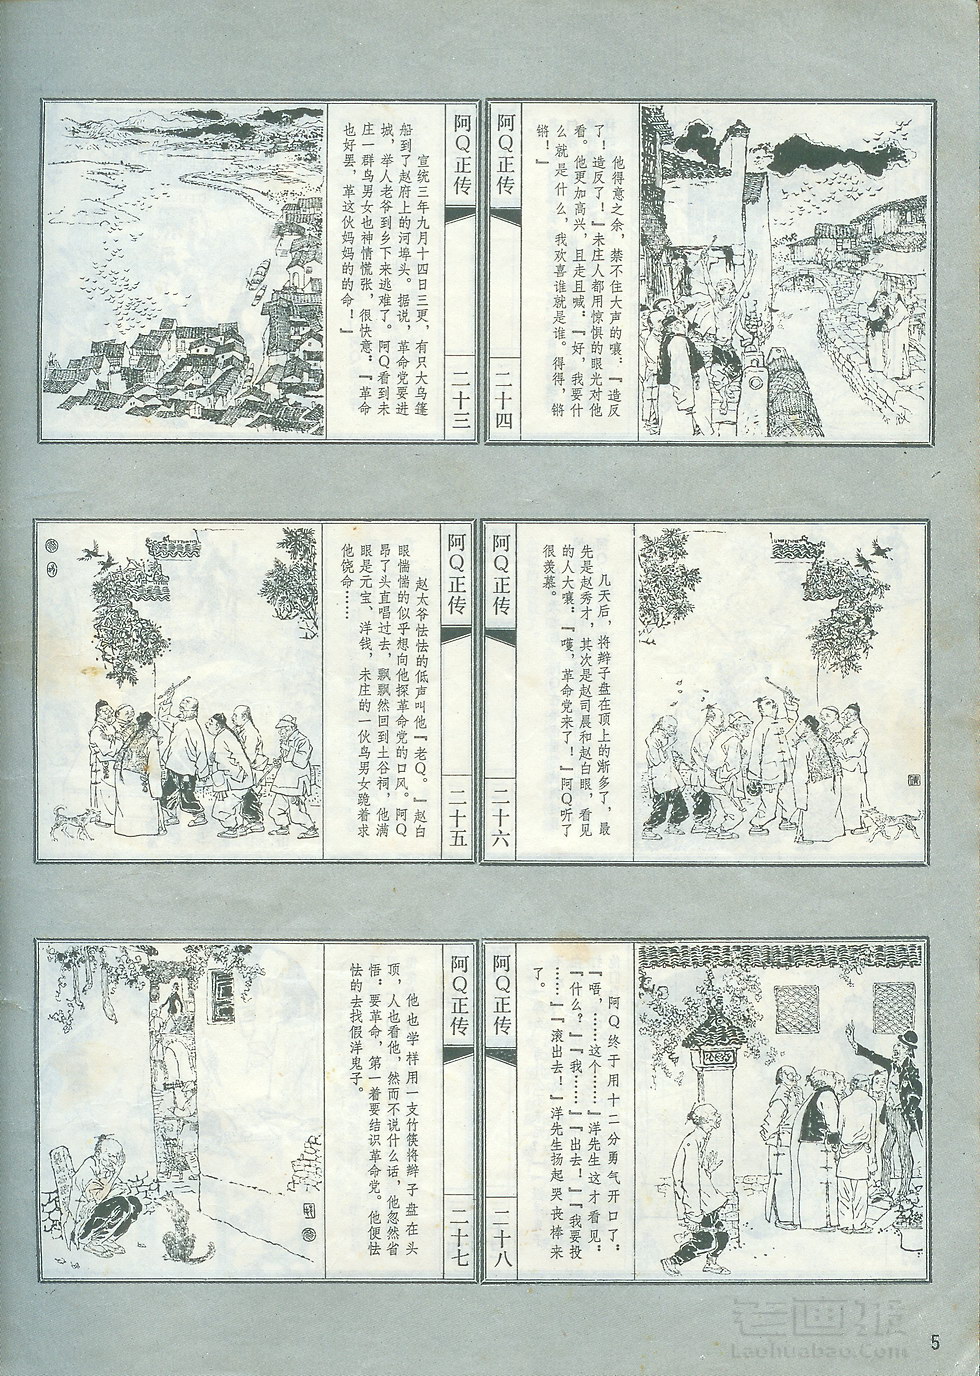 阿Q正传
二十三
宣统三年九月十四日三更，有只大乌篷
船到了赵府上的河埠头。据说，革命党要进
城，举人老爷到乡下来逃难了。阿Q看到未
庄一群鸟男女也神情慌张，很快意：『革命
也好罢，革这伙妈妈的的命！』
阿Q正传
二十四
他得意之余，禁不住大声的嚷：『造反
了！造反了！』未庄人都用惊惧的眼光对他
看。他更加高兴，且走且喊：『好，我要什
么就是什么，我欢喜谁就是谁。得得，锵
锵！』
阿Q正传
二十五
赵太爷怯怯的低声叫他『老Q。』赵白
眼惴惴的似乎想向他探革命党的口风。阿Q
昂了头直唱过去，飘飘然回到土谷祠，他满
眼是元宝、洋钱，未庄的一伙鸟男女跪着求
他饶命……
阿Q正传
二十六
几天后，将辫子盘在顶上的渐多了，最
先是赵秀才，其次是赵司晨和赵白眼，看见
的人大嚷：『嚄，革命党来了！』阿Q听了
很羡慕。
阿Q正传
二十七
他也学样用一支竹筷将辫子盘在头
顶，人也看他，然而不说什么话，他忽然省
悟：要革命，第一着要结识革命党。他便怯
怯的去找假洋鬼子。
阿Q正传
二十八
阿Q终于用十二分勇气开口了：
『唔，……这个……』洋先生这才看见：
『什么？』『我……』『出去！』『我要投
……』『滚出去！』洋先生扬起哭丧棒来
了。
老画报
Laohuabao.Com
5